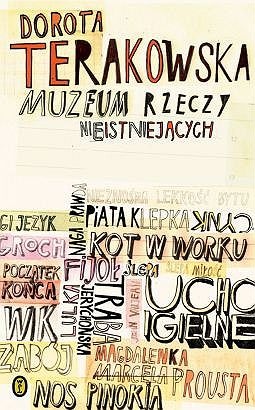 DOROTA
TERAKOWSKA
MUZEUM RZECZY
NIEISTNIEJĄCYCH
NIEZNOŚNA LEKKOŚĆ BYTU
GI JĘZYK
NAGA PRAWDA
PIĄTA KLEPKA
CYNK
GROCH
KOT W WORKU
POCZĄTEK
KOŃCA
FIJOŁ
ŚLEPA
ŚLEPA MIŁOŚĆ
WIK
LULKA
JERYCHOŃSKA
TRĄBA
UCHO
IGIELNE
ZABÓJ
MAGDALENKA
MARCELA PROUSTA
NOS PINOKIA